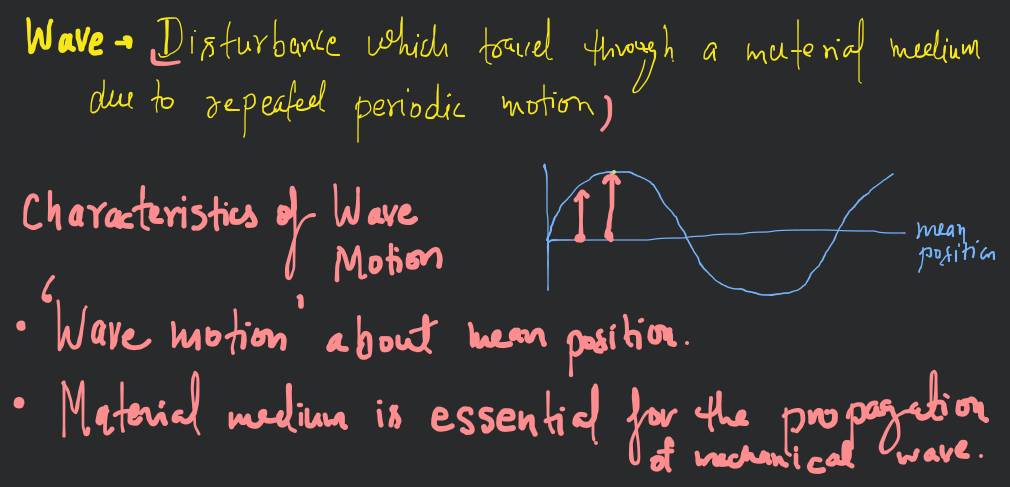 Wave → Disturbance which travel through a material medium
due to repeated periodic motion)
Characteristics of Wave
Motion
mean
position
• 'Wave motion' about mean position.
• Material medium is essential for the propagation
of mechanical wave.